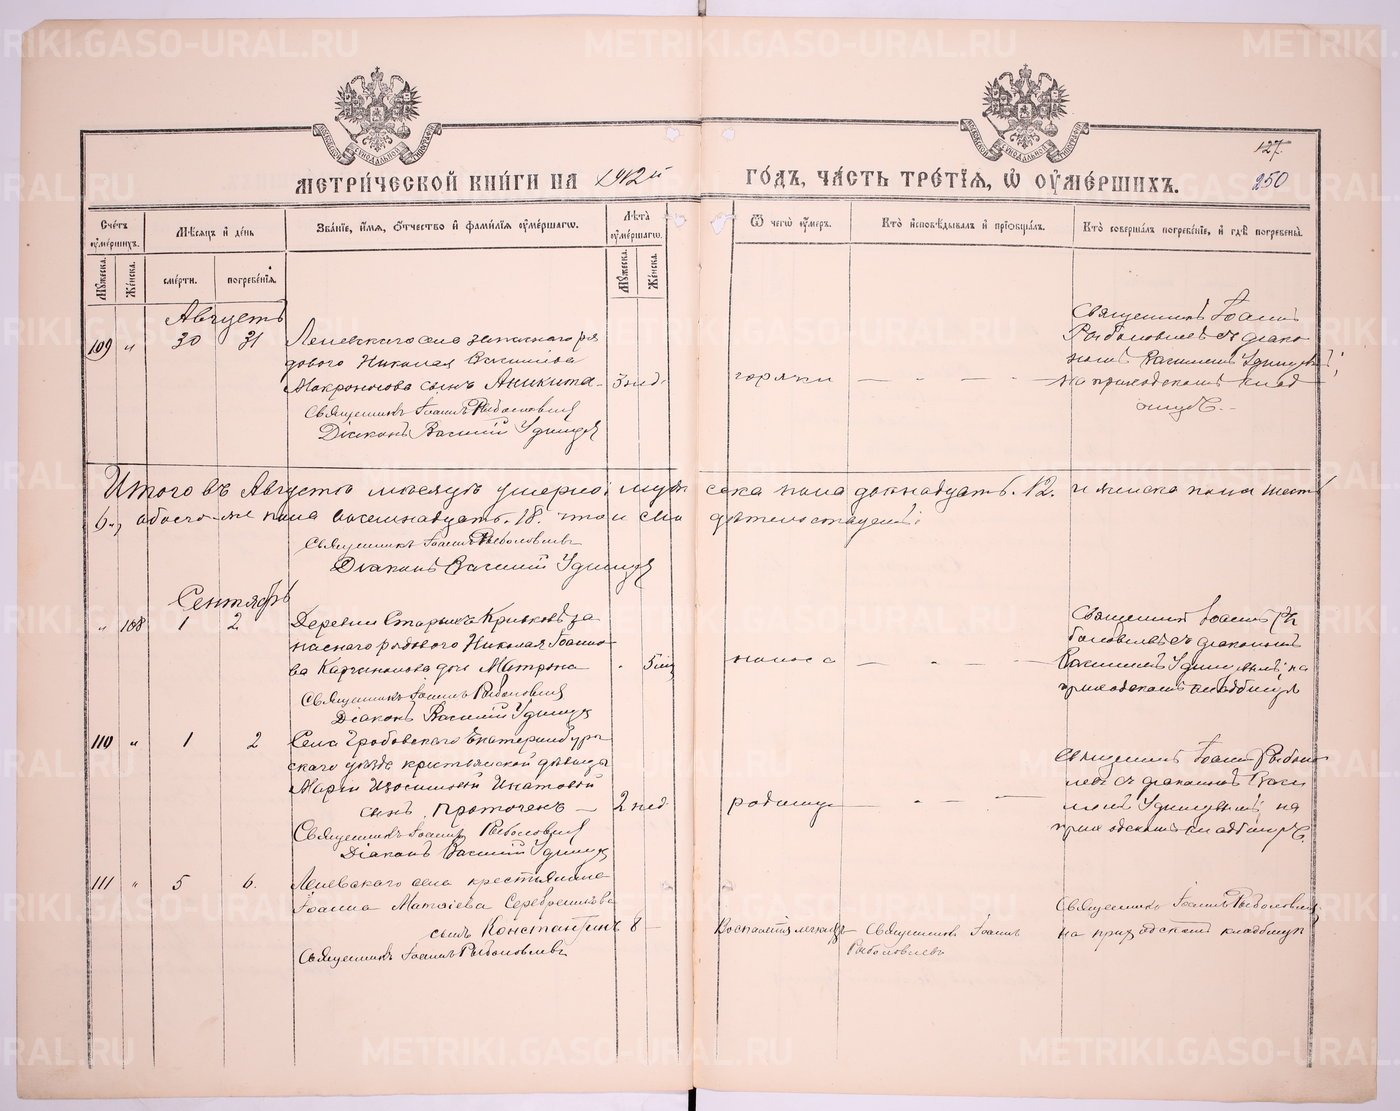 METRIKI.GASO-URAL.RU
МЕТРИ́ЧЕСКОЙ КНИ́ГИ НА 1912й ГО́ДЪ, ЧА́СТЬ ТРЕ́ТІЯ, Ѡ ОУМЕ́РШИХЪ.
127.
250
Сче́тъ оуме́ршихъ.
Мѣ́сяцъ и де́нь
Зва́ніе, и́мя, о́тчество и фами́лія оуме́ршагω.
Лѣ́та оуме́ршагω.
Ѿ чегὼ оу́меръ.
Кто̀ исповѣ́дывалъ и пріобща́лъ.
Кто̀ соверша́лъ погребе́ніе, и гдѣ̀ погребены̀.
Му́жеска.
Же́нска.
сме́рти.
погребе́нія.
Му́жеска.
Же́нска.
Августъ
109 " 30 31 Липевского села запаснаго ря
дового Николая Василіева
Макроносова сынъ Аникита - 3 нед. горячки
Священникъ Іоаннъ Рыболовлевъ
Діаконъ Василій Удинцевъ
Священникъ Іоаннъ
Рыболовлевъ съ діако
номъ Василіемъ Удинцевымъ;
на приходскомъ клад
бищѣ. -
Итого въ Августѣ мѣсяцѣ умерло: муже ска пола двѣнадцать. 12. и женска пола шесть
6., обоего же пола восемнадцать. 18. что и сви дѣтельствуемъ:
Священникъ Іоаннъ Рыболовлевъ
Діаконъ Василій Удинцевъ
Сентябрь
" 108 1 2 Деревни Старыхъ Кривковъ за
паснаго рядового Николая Іоанно
ва дочь Матрона - 5 мѣс. поноса
Священникъ Іоаннъ Рыболовлевъ
Діаконъ Василій Удинцевъ
Священникъ Іоаннъ Ры
боловлевъ съ діакономъ
Василіемъ Удинцевымъ; на
приходскомъ кладбищѣ
110 " 1 2 Села Гробовскаго Екатеринбург
скаго уѣзда крестьянской дѣвицы
Маріи Изосимовой Игнатовой
сынъ Протогенъ - 2 нед. родимца
Священникъ Іоаннъ Рыболовлевъ
Діаконъ Василій Удинцевъ
Священникъ Іоаннъ Рыболов
левъ съ діакономъ Васи
ліемъ Удинцевымъ; на
приходскомъ кладбищѣ.
111 " 5 6. Липевского села крестьянина
Іоанна Матѳіева Серебренникова
сынъ Константинъ 8 - Воспаленія легкихъ Священникъ Іоаннъ
Рыболовлевъ
Священникъ Іоаннъ Рыболовлевъ
Священникъ Іоаннъ Рыболовлевъ,
на приходскомъ кладбищѣ